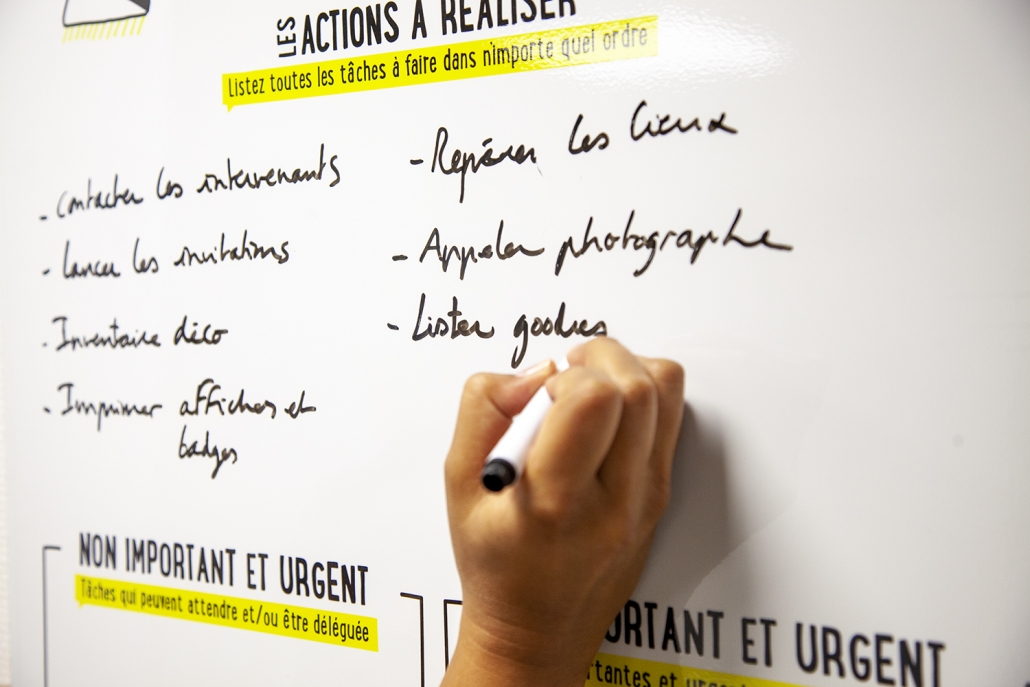 LES ACTIONS À RÉALISER
Listez toutes les tâches à faire dans n'importe quel ordre
- Contacter les intervenants
- lancer les invitations
- Inventaire déco
- Imprimer affiches et
badges
- Repérer les lieux
- Appeler photographe
- Lister goodies
NON IMPORTANT ET URGENT
Tâches qui peuvent attendre et/ou être déléguée
ORTANT ET URGENT
rtantes et urgen